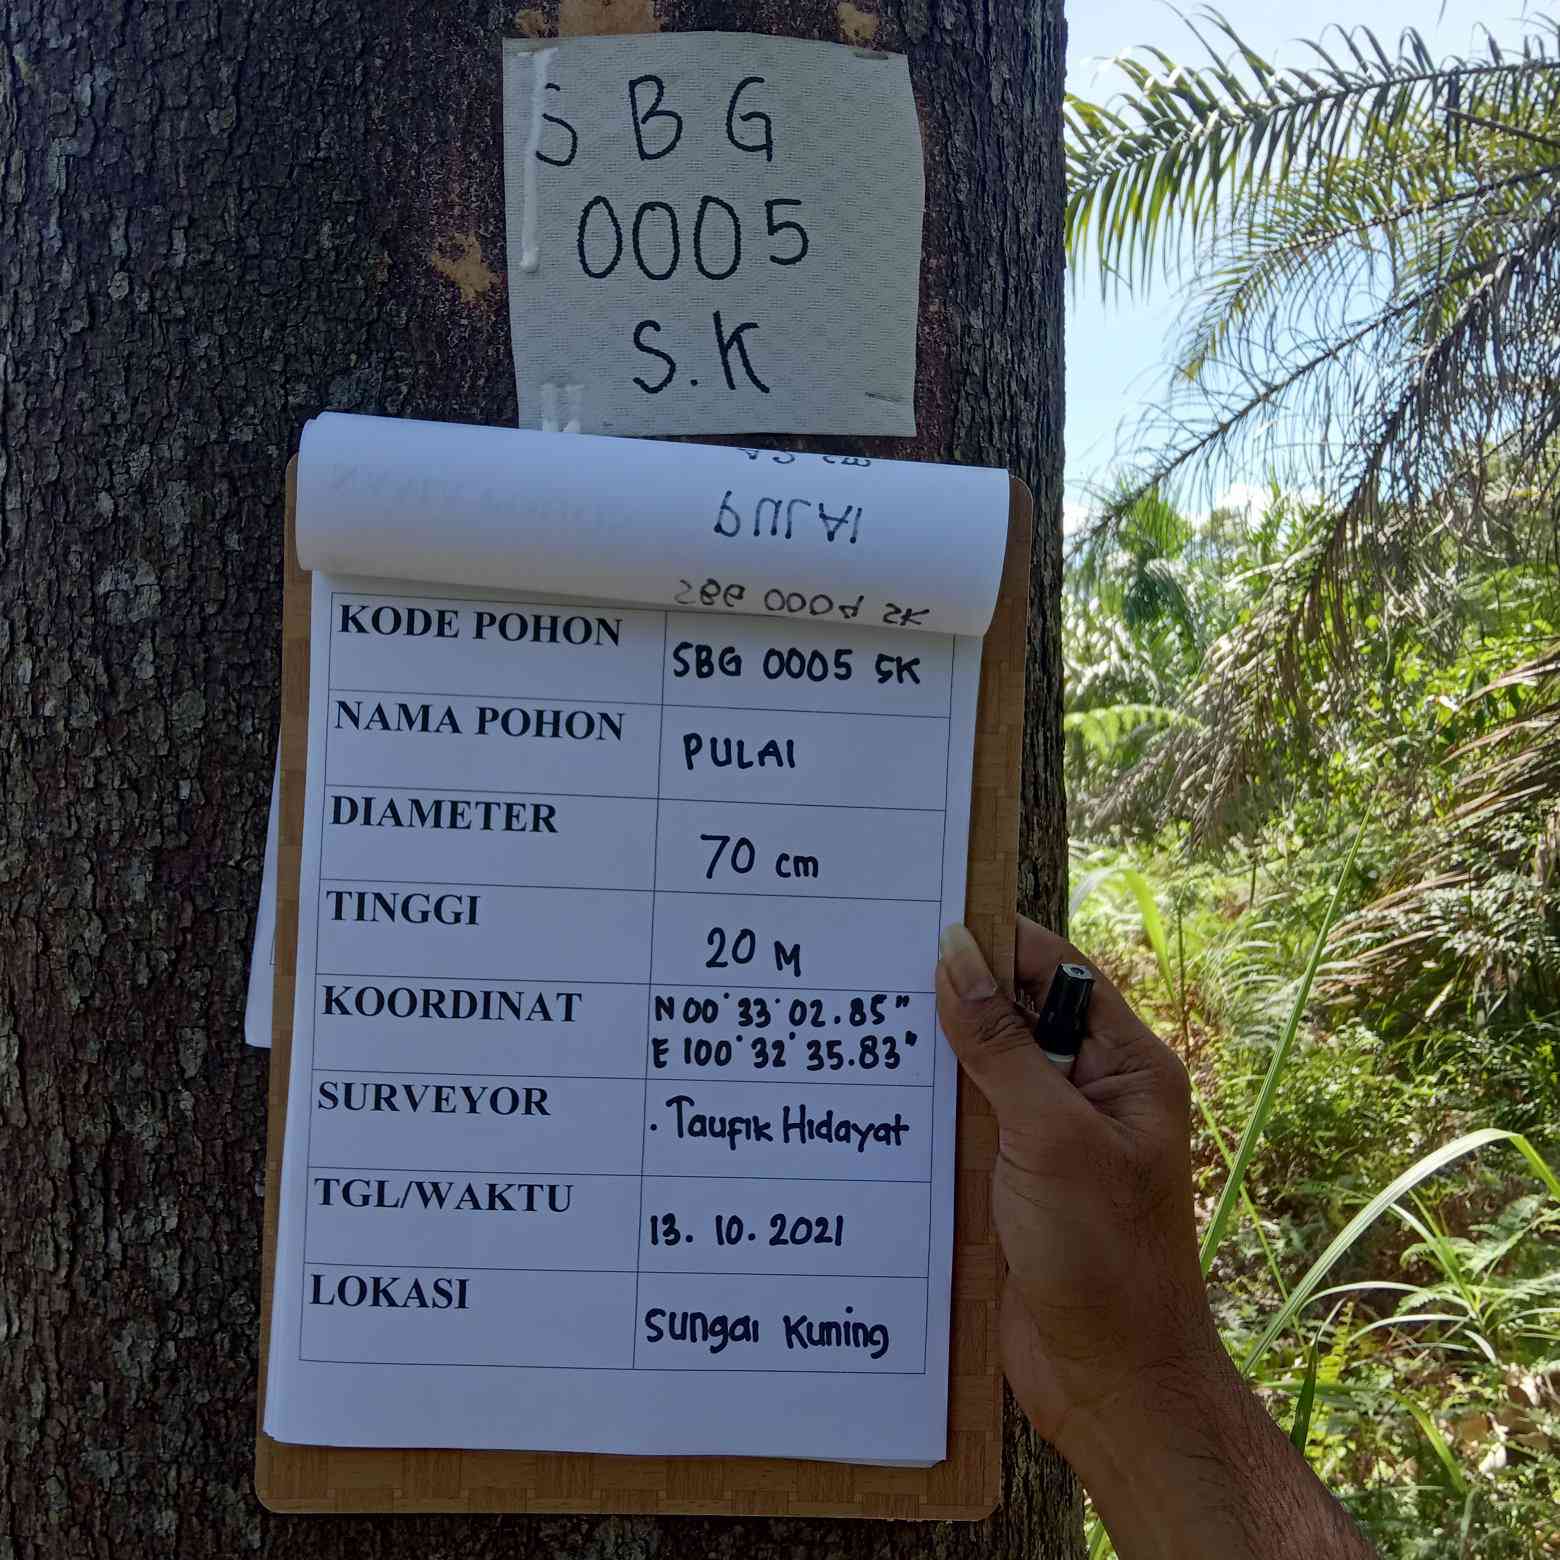 SBG
0005
S.K
PULAI
SBG 0004 SK
KODE POHON
SBG 0005 SK
NAMA POHON
PULAI
DIAMETER
70 cm
TINGGI
20 M
KOORDINAT
N 00° 33' 02.85"
E 100° 32' 35.83"
SURVEYOR
. Taufik Hidayat
TGL/WAKTU
13. 10. 2021
LOKASI
Sungai Kuning